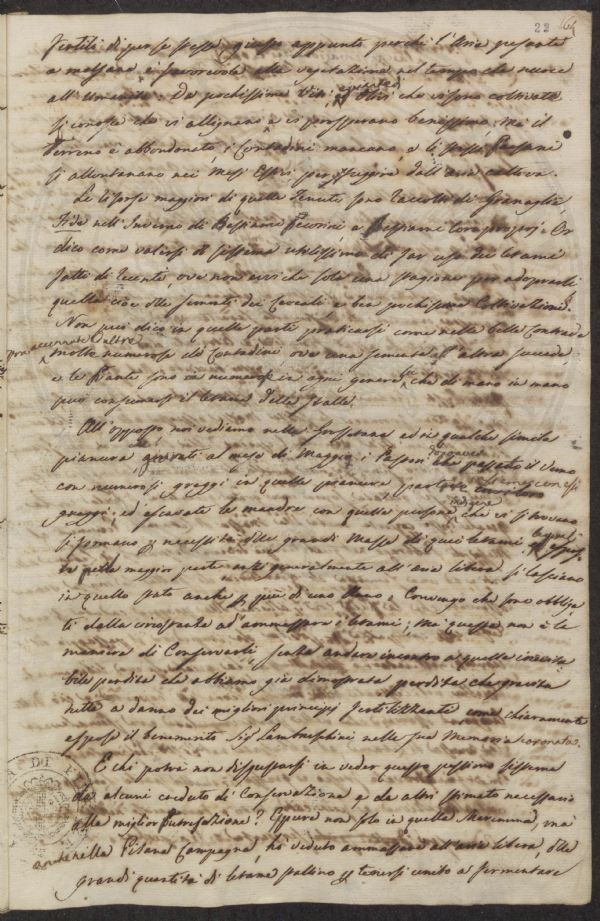 22
fertili di per se stesse giusto appunto perchè l'Aria pesante
e malsana è favorevole alla vegetazione nel tempo che nuoce
all'Umanità. Da pochissime Viti, ed Olivi che vi sono coltivate
si conosce che vi allignano e vi prosperano benissimo, ma il
Terreno è abbandonato, i Contadini mancano, e li stessi Paesani
si allontanano nei Mesi Estivi per sfuggire dall'aria cattiva.
Le risorse maggiori di quelle Tenute sono Raccolti di Granaglie,
Fide nell'Inverno di Bestiame Pecorino, e Bestiami loro proprj. Or
dico come valersi il sistema utilissimo di far uso dei letami
fatti di recente, ove non avvi che sola una stagione per adoprarli
quella cioè alle semente dei Cereali, e ben pochissime Coltivazioni?
Non può dico in quelle parti praticarsi come nelle belle Contrade
praccennate, altre
molto numerose di Contadini, ove una sementa all'altra succede,
e le Piante sono in numero e in ogni genere che di mano in mano
può consumarsi il letame delle stalle.
All'opposto noi vediamo nella Grossetana ed in qualche simile
pianura, giunti al mese di Maggio, i Pastori che passato il verno
con numerosi greggi in quelle pianure, partire con i loro
greggi, ed escavate le mandre con quelle persone che vi si trovano
si formano per necessità delle grandi Masse di quei letami
la maggior parte generalmente all'aria libera. Si lasciano
in quello stato anche per più di uno Anno. Convengo che sono obbliga
ti dalla circostanza ad ammassare i letami, ma questa non è la
maniera di Conservarli senza andare incontro a quella inevita
bile perdita che abbiamo già dimostrata perdita che gravita
tutta a danno dei migliori principj fertilizzanti come chiaramente
espose il benemerito Sig. Lambruschini nella sua Memoria coronata.
E chi potrà non disgustarsi in veder questo pessimo sistema
da alcuni creduto di Conservazione e da altri stimato necessario
alla miglior Putrefazione? Eppure non solo in quella Maremma, ma
anche nella Pisana Campagna, ho veduto ammassare all'aria libera, delle
grandi quantità di letame pallino per tenersi unito a fermentare